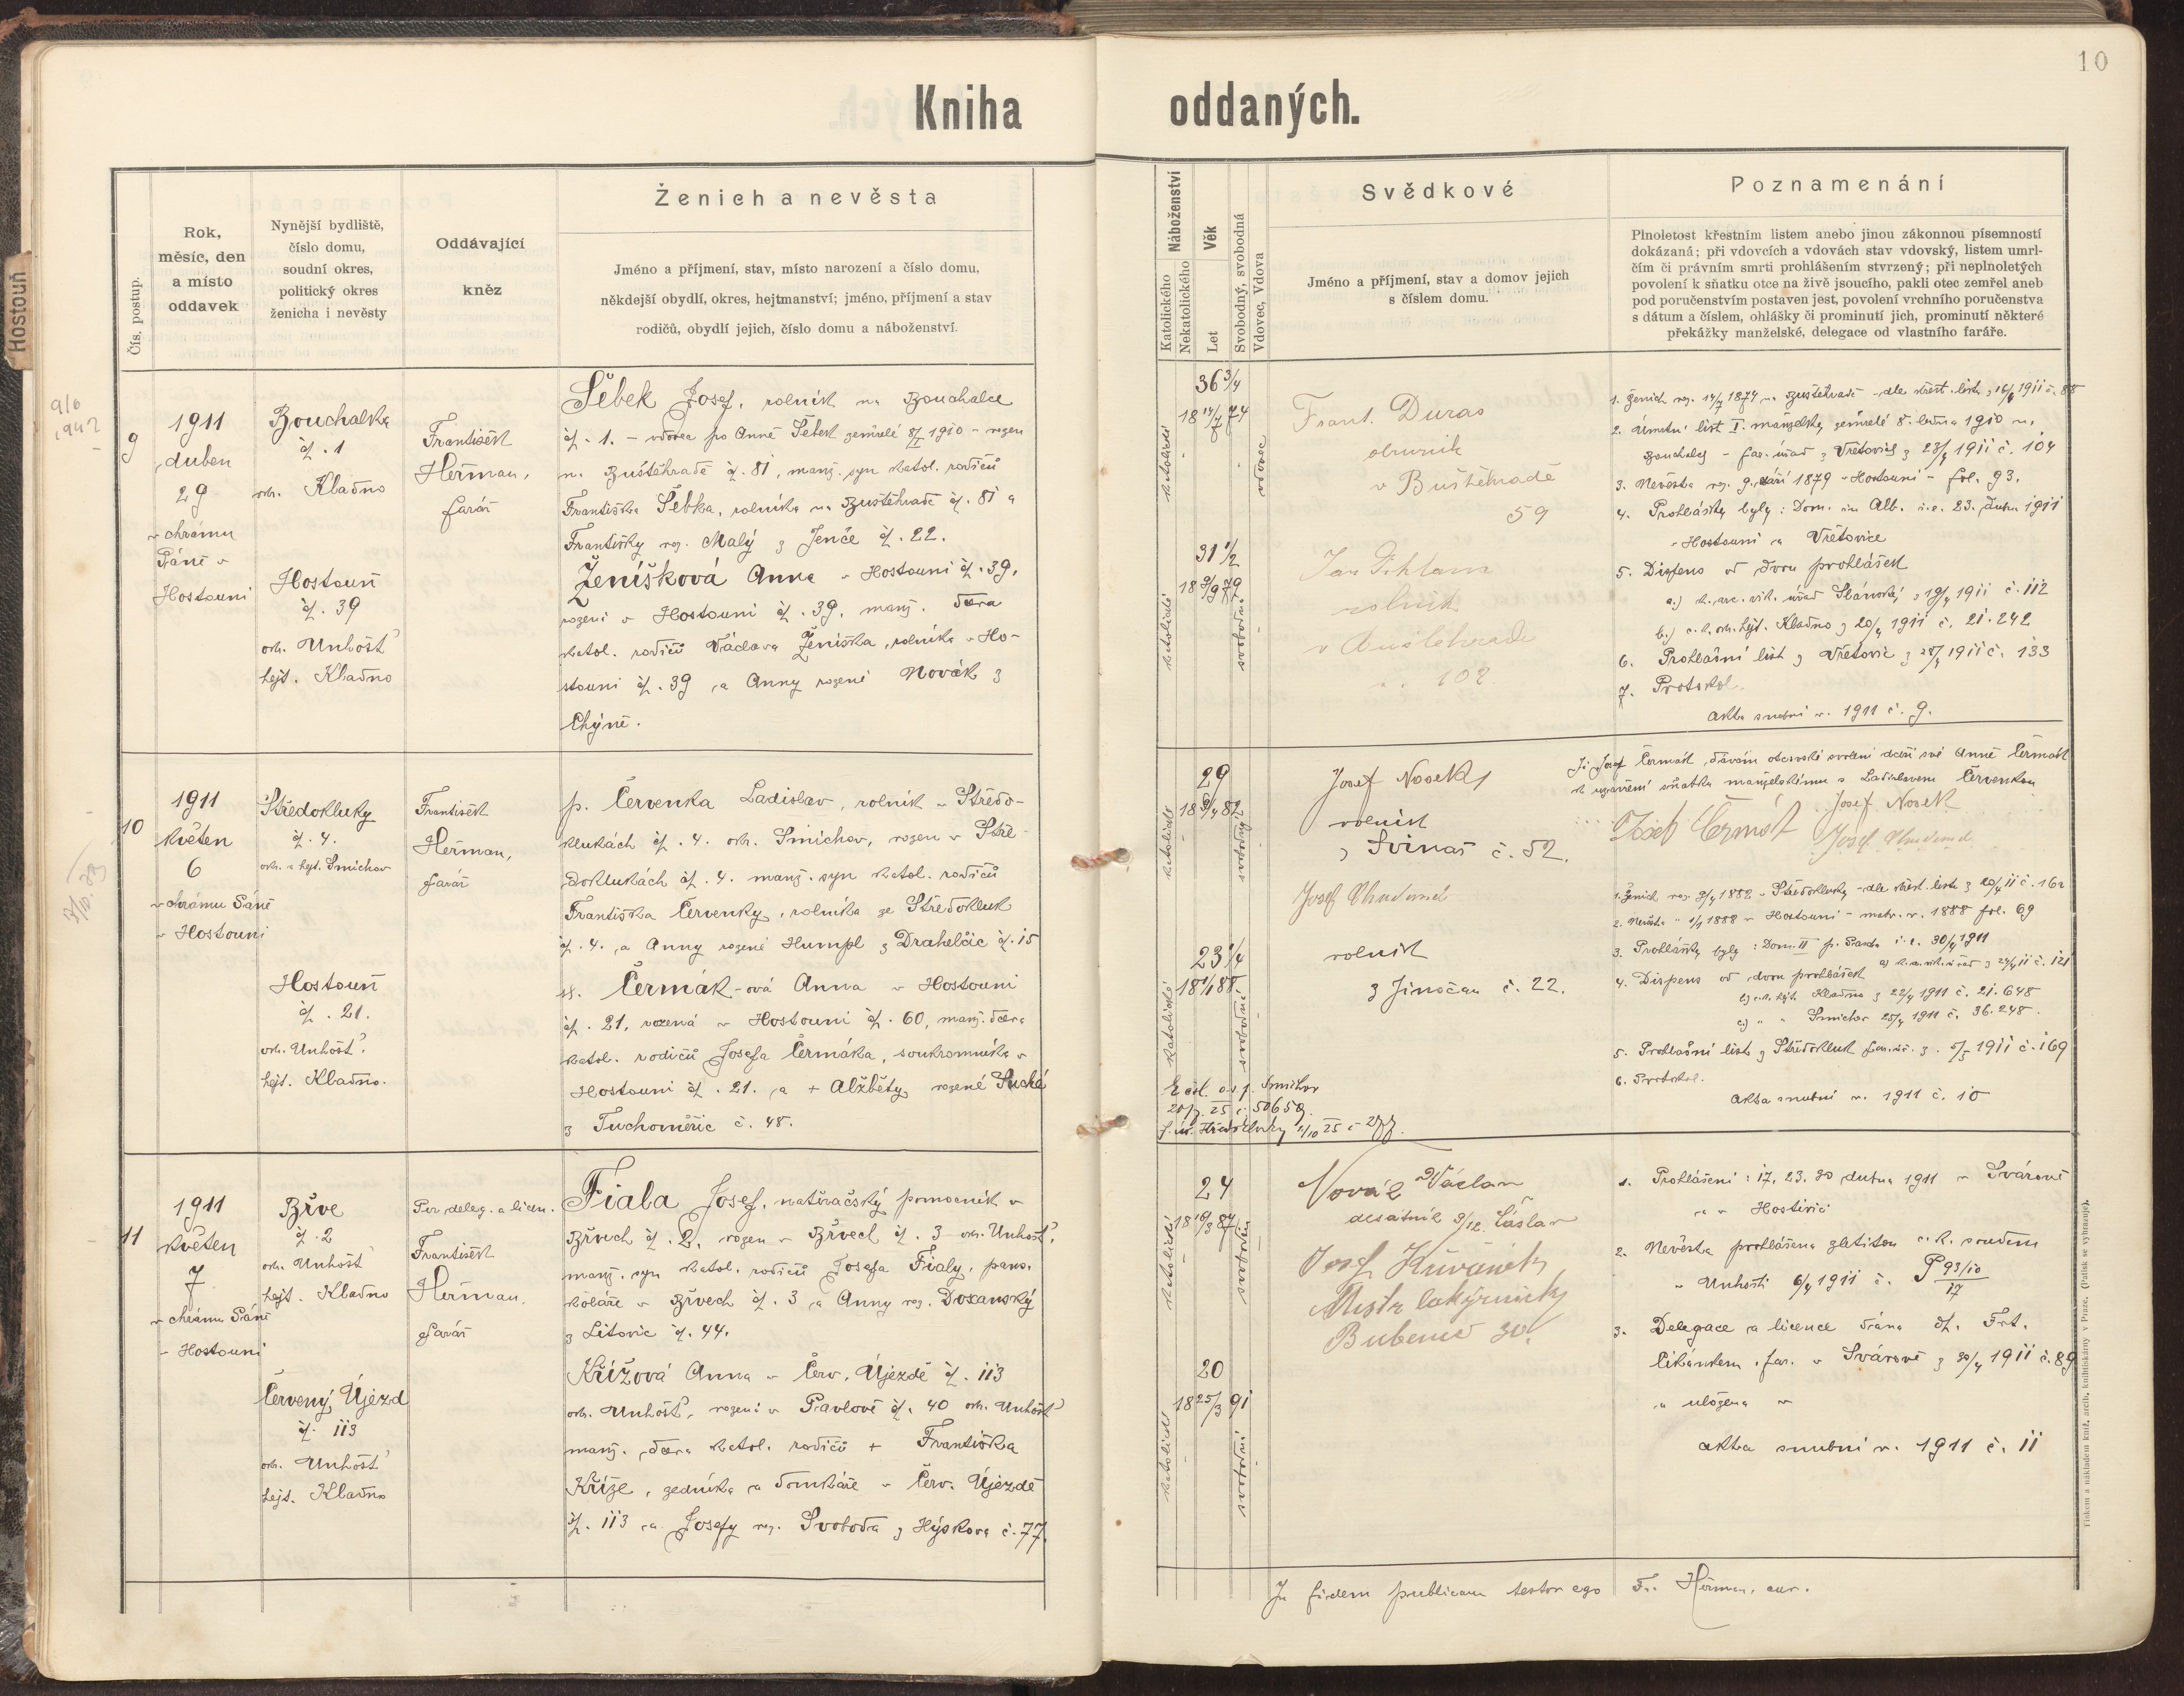 10
Kniha oddaných.
Hostouň
Čís. postup.
Rok,
měsíc, den
a místo
oddavek
Nynější bydliště,
číslo domu,
soudní okres,
politický okres
ženicha i nevěsty
Oddávající
kněz
Ženich a nevěsta
Jméno a příjmení, stav, místo narození a číslo domu,
někdejší obydlí, okres, hejtmanství; jméno, příjmení a stav
rodičů, obydlí jejich, číslo domu a náboženství.
Náboženství
Katolického
Nekatolického
Věk
Let
Svobodný, svobodná
Vdovec, Vdova
Svědkové
Jméno a příjmení, stav a domov jejich
s číslem domu.
Poznamenání
Plnoletost křestním listem anebo jinou zákonnou písemností
dokázaná; při vdovcích a vdovách stav vdovský, listem umrl-
čím či právním smrti prohlášením stvrzený; při neplnoletých
povolení k sňatku otce na živě jsoucího, pakli otec zemřel aneb
pod poručenstvím postaven jest, povolení vrchního poručenstva
s dátum a číslem, ohlášky či prominutí jich, prominutí některé
překážky manželské, delegace od vlastního faráře.
9
1911
duben
29
v chrámu
Páně v
Hostouni
Bouchalka
čp. 1
okr. Kladno
Hostouň
čp. 39
okr. Unhošť
hejt. Kladno
František
Heřman,
farář
Šebek Josef, rolník na Bouchalce
čp. 1. – vdovec po Anně Šebek zemřelé 8/I 1910 – rozen
na Buštěhradě čp. 81, manž. syn katol. rodičů
Františka Šebka, rolníka na Buštěhradě čp. 81 a
Františky roz. Malý z Jenče čp. 22.
Ženíšková Anna v Hostouni čp. 39,
rozená v Hostouni čp. 39, manž. dcera
katol. rodičů Václava Ženíška, rolníka v Ho-
stouni čp. 39 a Anny rozené Novák z
Chýně.
36 3/4
18 14/7 74
katolické
vdovec
31 1/2
18 9/9 79
katolické
svobodná
Frant. Duras
obuvník
v Buštěhradě
59
Jan
rolník
v Buštěhradě
102
1. Ženich roz. 14/7 1874 na Buštěhradě – dle křest. listu z 16/4 1911 č. 88
2. Úmrtní list I. manželky zemřelé 8. ledna 1910 na
Bouchalce – far. úřad z Vřetovic z 23/4 1911 č. 104
3. Nevěsta roz. 9. září 1879 v Hostouni – fol. 93.
4. Prohlášky byly: Dom. in Alb. i.e. 23. dubna 1911
v Hostouni a Vřetovice
5. Dispens od dvou prohlášek
a.) k. arc. vik. úřad Slánský z 19/4 1911 č. 112
b.) c. k. okr. hejt. Kladno z 20/4 1911 č. 21.242
6. Prohlašní list z Vřetovic z 28/4 1911 č. 133
7. Protokol.
Akta snubní r. 1911 č. 9.
10
1911
květen
6
v chrámu Páně
v Hostouni
Středokluky
čp. 4.
okr. a hejt. Smíchov
Hostouň
čp. 21.
okr. Unhošť.
hejt. Kladno.
František
Heřman,
farář
p. Červenka Ladislav, rolník v Středo-
klukách čp. 4. okr. Smíchov, rozen v Stře-
doklukách čp. 4. manž. syn katol. rodičů
Františka Červenky, rolníka ze Středokluk
čp. 4. a Anny rozené Humpl z Drahelčic čp. 15
sl. Čermák-ová Anna v Hostouni
čp. 21, rozená v Hostouni čp. 60, manž. dcera
katol. rodičů Josefa Čermáka, soukromníka v
Hostouni čp. 21. a + Alžběty rozené Suchá
z Tuchoměřic č. 48.
29
18 9/4 82
katolické
svobodný
23 1/4
18 1/1 88
katolické
svobodná
Josef Nosek,
rolník
z Svinař č. 52.
Josef Chudomel
rolník
z Jinočan č. 22.
Já Josef Čermák, dávám otcovské svolení dceři své Anně Čermák
k uzavření sňatku manželskému s Ladislavem Červenkou
Josef Čermák
Josef Nosek
Josef Chudomel
1. Ženich roz. 9/4 1882 v Středokluky – dle křest. listu z 20/4 11 č. 162
2. Nevěsta " 1/1 1888 v Hostouni – matr. r. 1888 fol. 69
3. Prohlášky byly: Dom. II p. Pascha i.e. 30/4 1911
4. Dispens od dvou prohlášek a) k. a. vik. úřad z 24/4 11 č. 121
b) c. k. hejt. Kladno z 22/4 1911 č. 21.648
c) " " Smíchov 25/4 1911 č. 36.248.
5. Prohlašní list z Středokluk z 5/5 1911 č. 169
6. Protokol.
Akta snubní r. 1911 č. 10
11
1911
květen
7
v chrámu Páně
v Hostouni
Břve
čp. 2
okr. Unhošť
hejt. Kladno
Červený Újezd
čp. 113
okr. Unhošť
hejt. Kladno
Per deleg. a licen.
František
Heřman,
farář
Fiala Josef, natěračský pomocník v
Břvech čp. 2, rozen v Břvech čp. 3 – okr. Unhošť,
manž. syn katol. rodičů Josefa Fialy, pans.
koláře v Břvech čp. 3 a Anny roz. Doxanský
z Litovic čp. 44.
Křížová Anna v Červ. Újezdě čp. 113
okr. Unhošť, rozená v Pavlově čp. 40 okr. Unhošť
manž. dcera katol. rodičů + Františka
Kříže, zedníka a domkáře v Červ. Újezdě
čp. 113 a Josefy roz. Svoboda z Hýskova č. 77.
24
18 16/3 87
katolické
svobodný
20
18 25/3 91
katolické
svobodná
Novák Václav
desátník 3/12 Čáslav
Josef Křivánek
Mistr lakýrnický
Bubeneč 30.
1. Prohlášení: 17, 23, 30 dubna 1911 v Svárově
a v Hostivici
2. Nevěsta prohlášena zletitou c. k. soudem
v Unhošti 6/4 1911 č. P 93/10 17
3. Delegace a licence dána dp. Frt.
Cikántem, far. v Svárově z 30/4 1911 č. 89
a uložena v
akta snubní r. 1911 č. 11
In fidem publicam testor ego Fr. Heřman, cur.